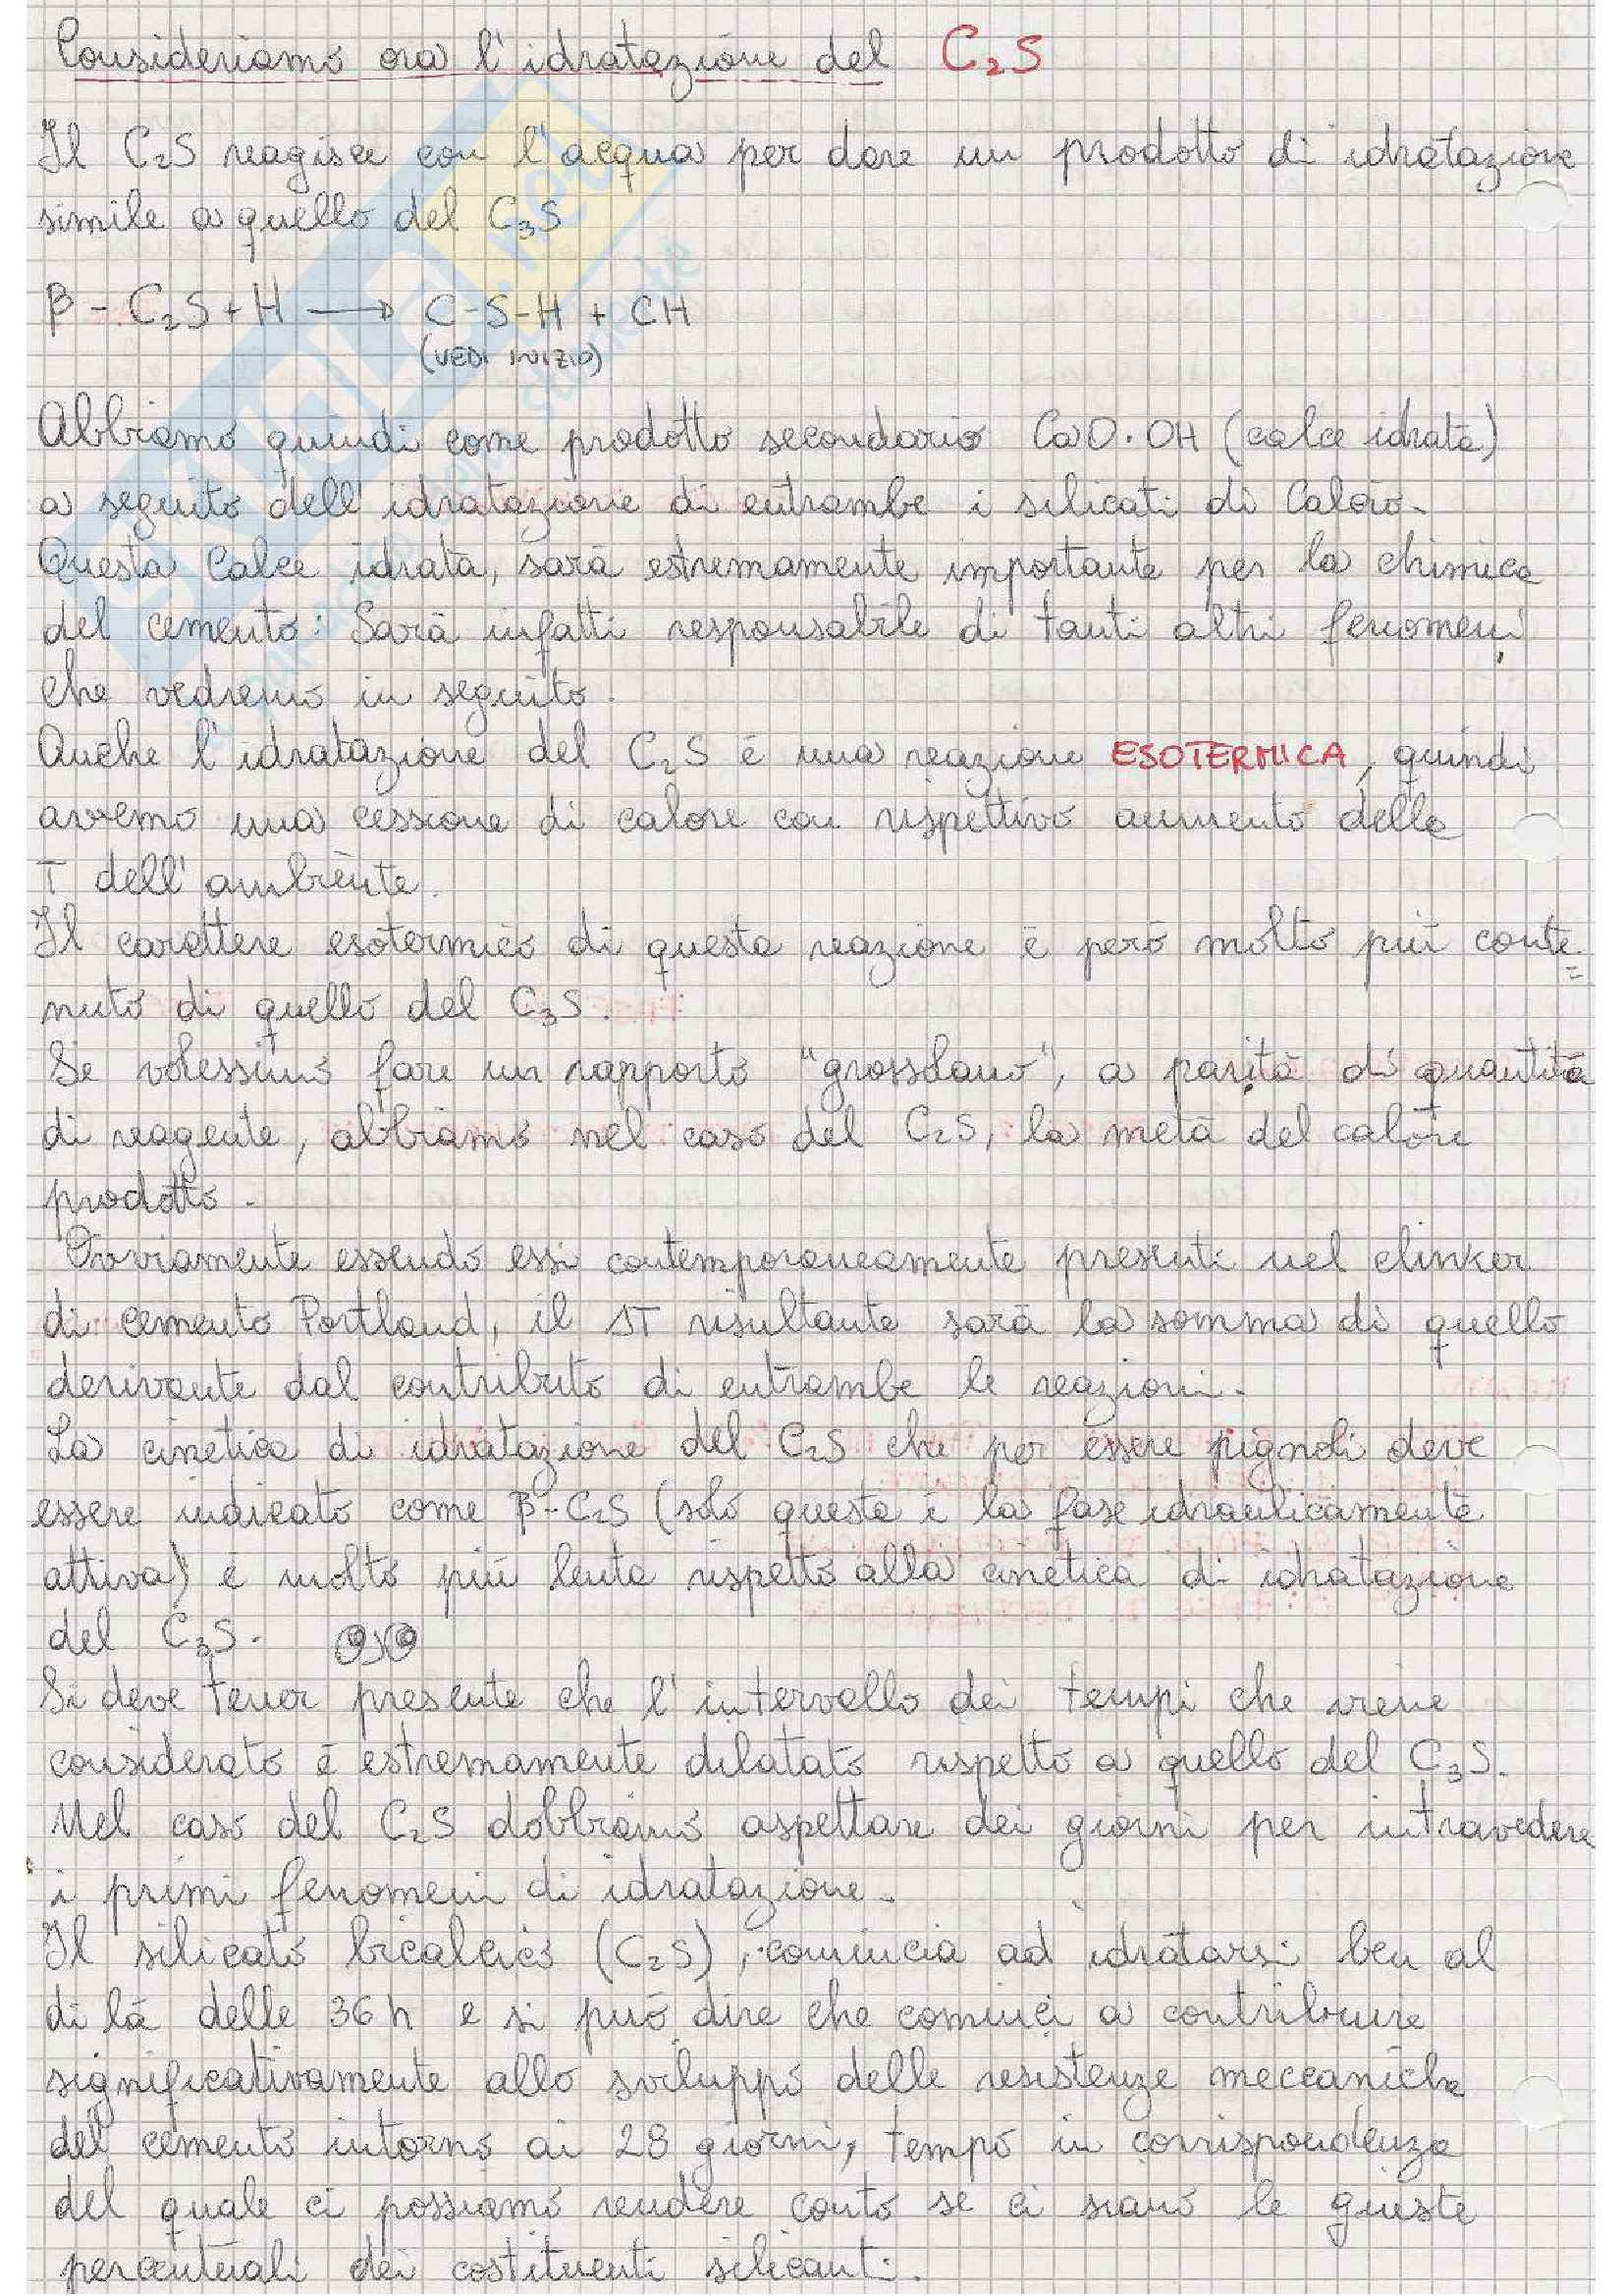 Consideriamo ora l'idratazione del C₂S
Il C₂S reagisce con l'acqua per dare un prodotto di idratazione
simile a quello del C₃S
β - C₂S + H → C-S-H + CH
(VEDI INIZIO)
Abbiamo quindi come prodotto secondario CaO·OH (calce idrata)
a seguito dell'idratazione di entrambe i silicati di Calcio.
Questa Calce idrata, sarà estremamente importante per la chimica
del cemento: Sarà infatti responsabile di tanti altri fenomeni
che vedremo in seguito.
Anche l'idratazione del C₂S è una reazione ESOTERMICA, quindi
avremo una cessione di calore con rispettivo aumento della
T dell'ambiente.
Il carattere esotermico di questa reazione è però molto più conte=
nuto di quello del C₃S.
Se volessimo fare un rapporto "grossolano", a parità di quantità
di reagente, abbiamo nel caso del C₂S, la metà del calore
prodotto.
Ovviamente essendo essi contemporaneamente presenti nel clinker
di cemento Portland, il ΔT risultante sarà la somma di quello
derivante dal contributo di entrambe le reazioni.
La cinetica di idratazione del C₂S che per essere pignoli deve
essere indicato come β-C₂S (solo questa è la fase idraulicamente
attiva) è molto più lenta rispetto alla cinetica di idratazione
del C₃S.
Si deve tener presente che l'intervallo dei tempi che viene
considerato è estremamente dilatato rispetto a quello del C₃S.
Nel caso del C₂S dobbiamo aspettare dei giorni per intravedere
i primi fenomeni di idratazione.
Il silicato bicalcico (C₂S), comincia ad idratarsi ben al
di là delle 36 h e si può dire che cominci a contribuire
significativamente allo sviluppo delle resistenze meccaniche
del cemento intorno ai 28 giorni, tempo in corrispondenza
del quale ci possiamo rendere conto se ci siano le giuste
percentuali dei costituenti silicanti.